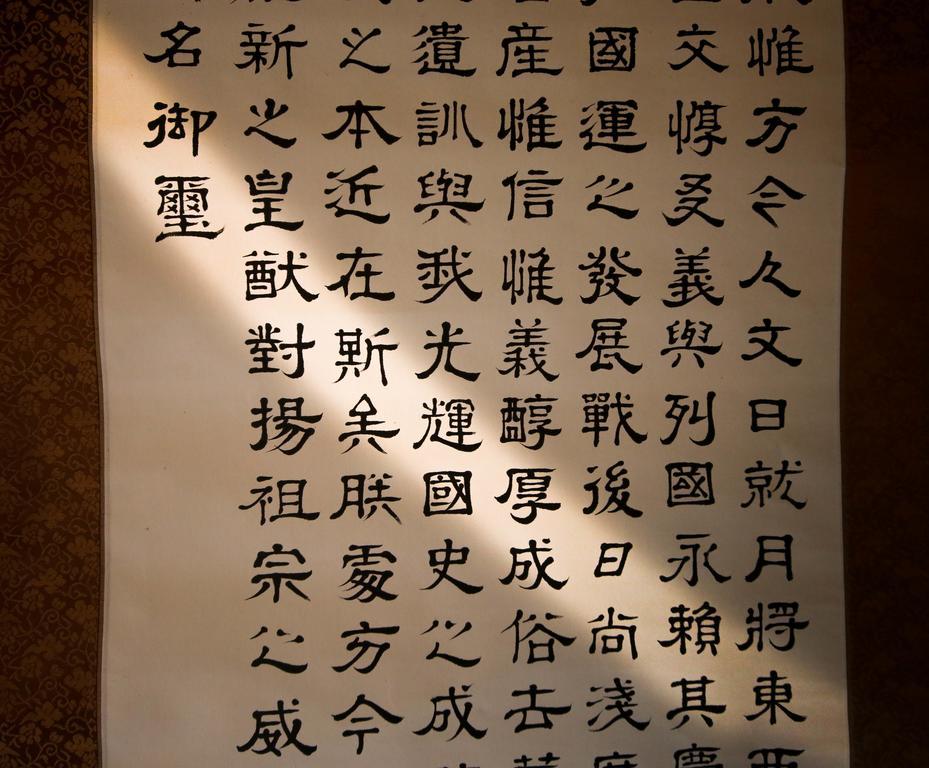 惟方今人文日就月將東西
交惇友義與列國永賴其慶
國運之發展戰後日尚淺庶
産惟信惟義醇厚成俗去華
遺訓與我光輝國史之成
之本近在斯矣朕處方今
新之皇猷對揚祖宗之威
名御璽